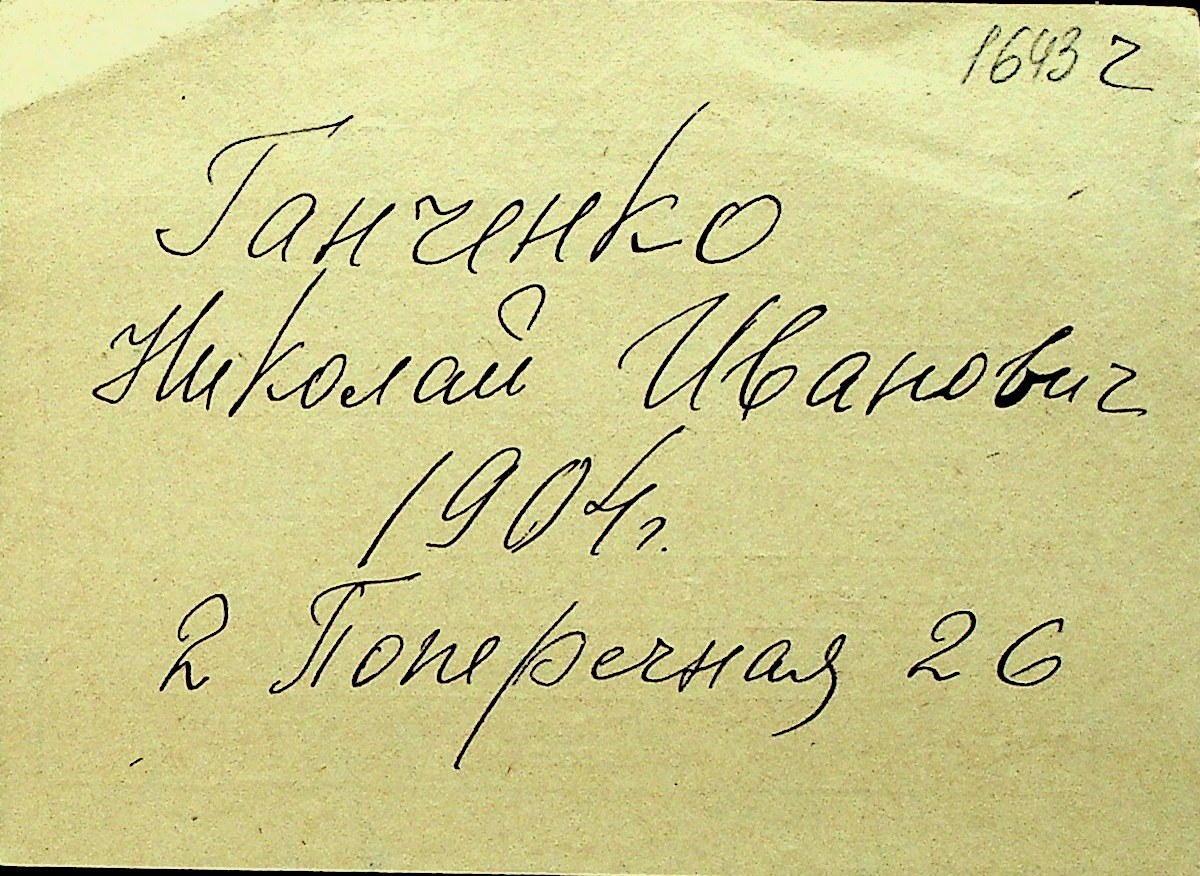 1643 ч
Ганченко
Николай Иванович
1904г.
2 Поперечная 26